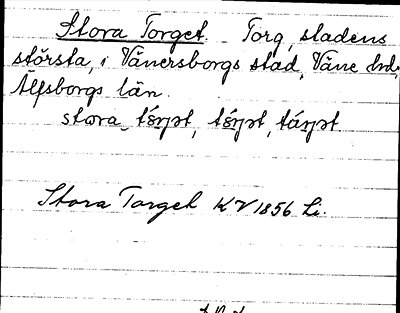 Stora Torget. Torg, stadens
största, i Vänersborgs stad, Väne hd,
Älfsborgs län.
Stora Torget KV 1856 Li.